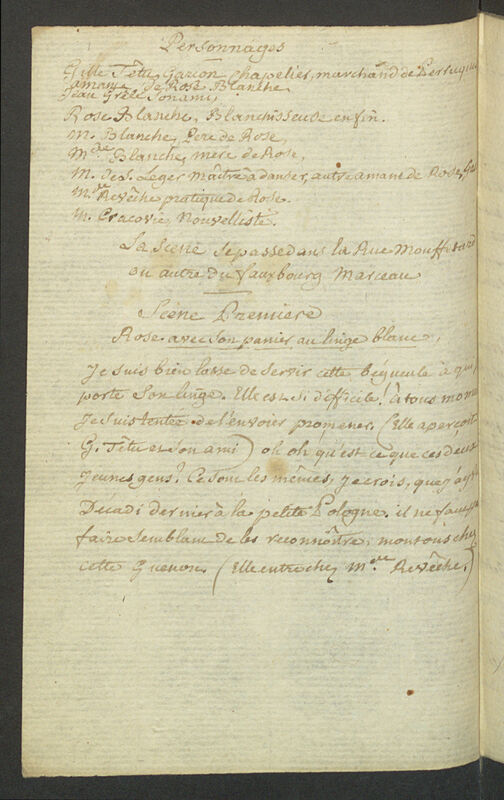 Personnages
Gille Têtu, Garçon chapelier, marchand de Perruque
amant de Rose Blanche
Jean Grêle son ami,
Rose Blanche, Blanchisseuse en fin.
M. Blanche, Pere de Rose,
Mde Blanche, mere de Rose,
M. Leger Maître à danser, autre amant de Rose,
Mde Revêche pratique de Rose.
M. Cracovie, Nouvelliste.
La Scène se passe dans la Rue Mouffetard
ou autre du fauxbourg Marceau
Scène Premiere
Rose avec son panier au linge blanc,
Je suis bien lasse de servir cette bégueule à qui
porte son linge. Elle est si difficile! à tous mome
Je suis tentée de l'envoier promener. (Elle aperçoit
G. Têtu et son ami) oh oh qu'est ce que ces deux
jeunes gens? Ce sont les mêmes, je crois, que j'ay
Décadi dernier à la petite Pologne. il ne faut pa
faire semblant de les reconnôitre; montons chez
cette Guenon. (Elle entre chez Mde Revêche.)